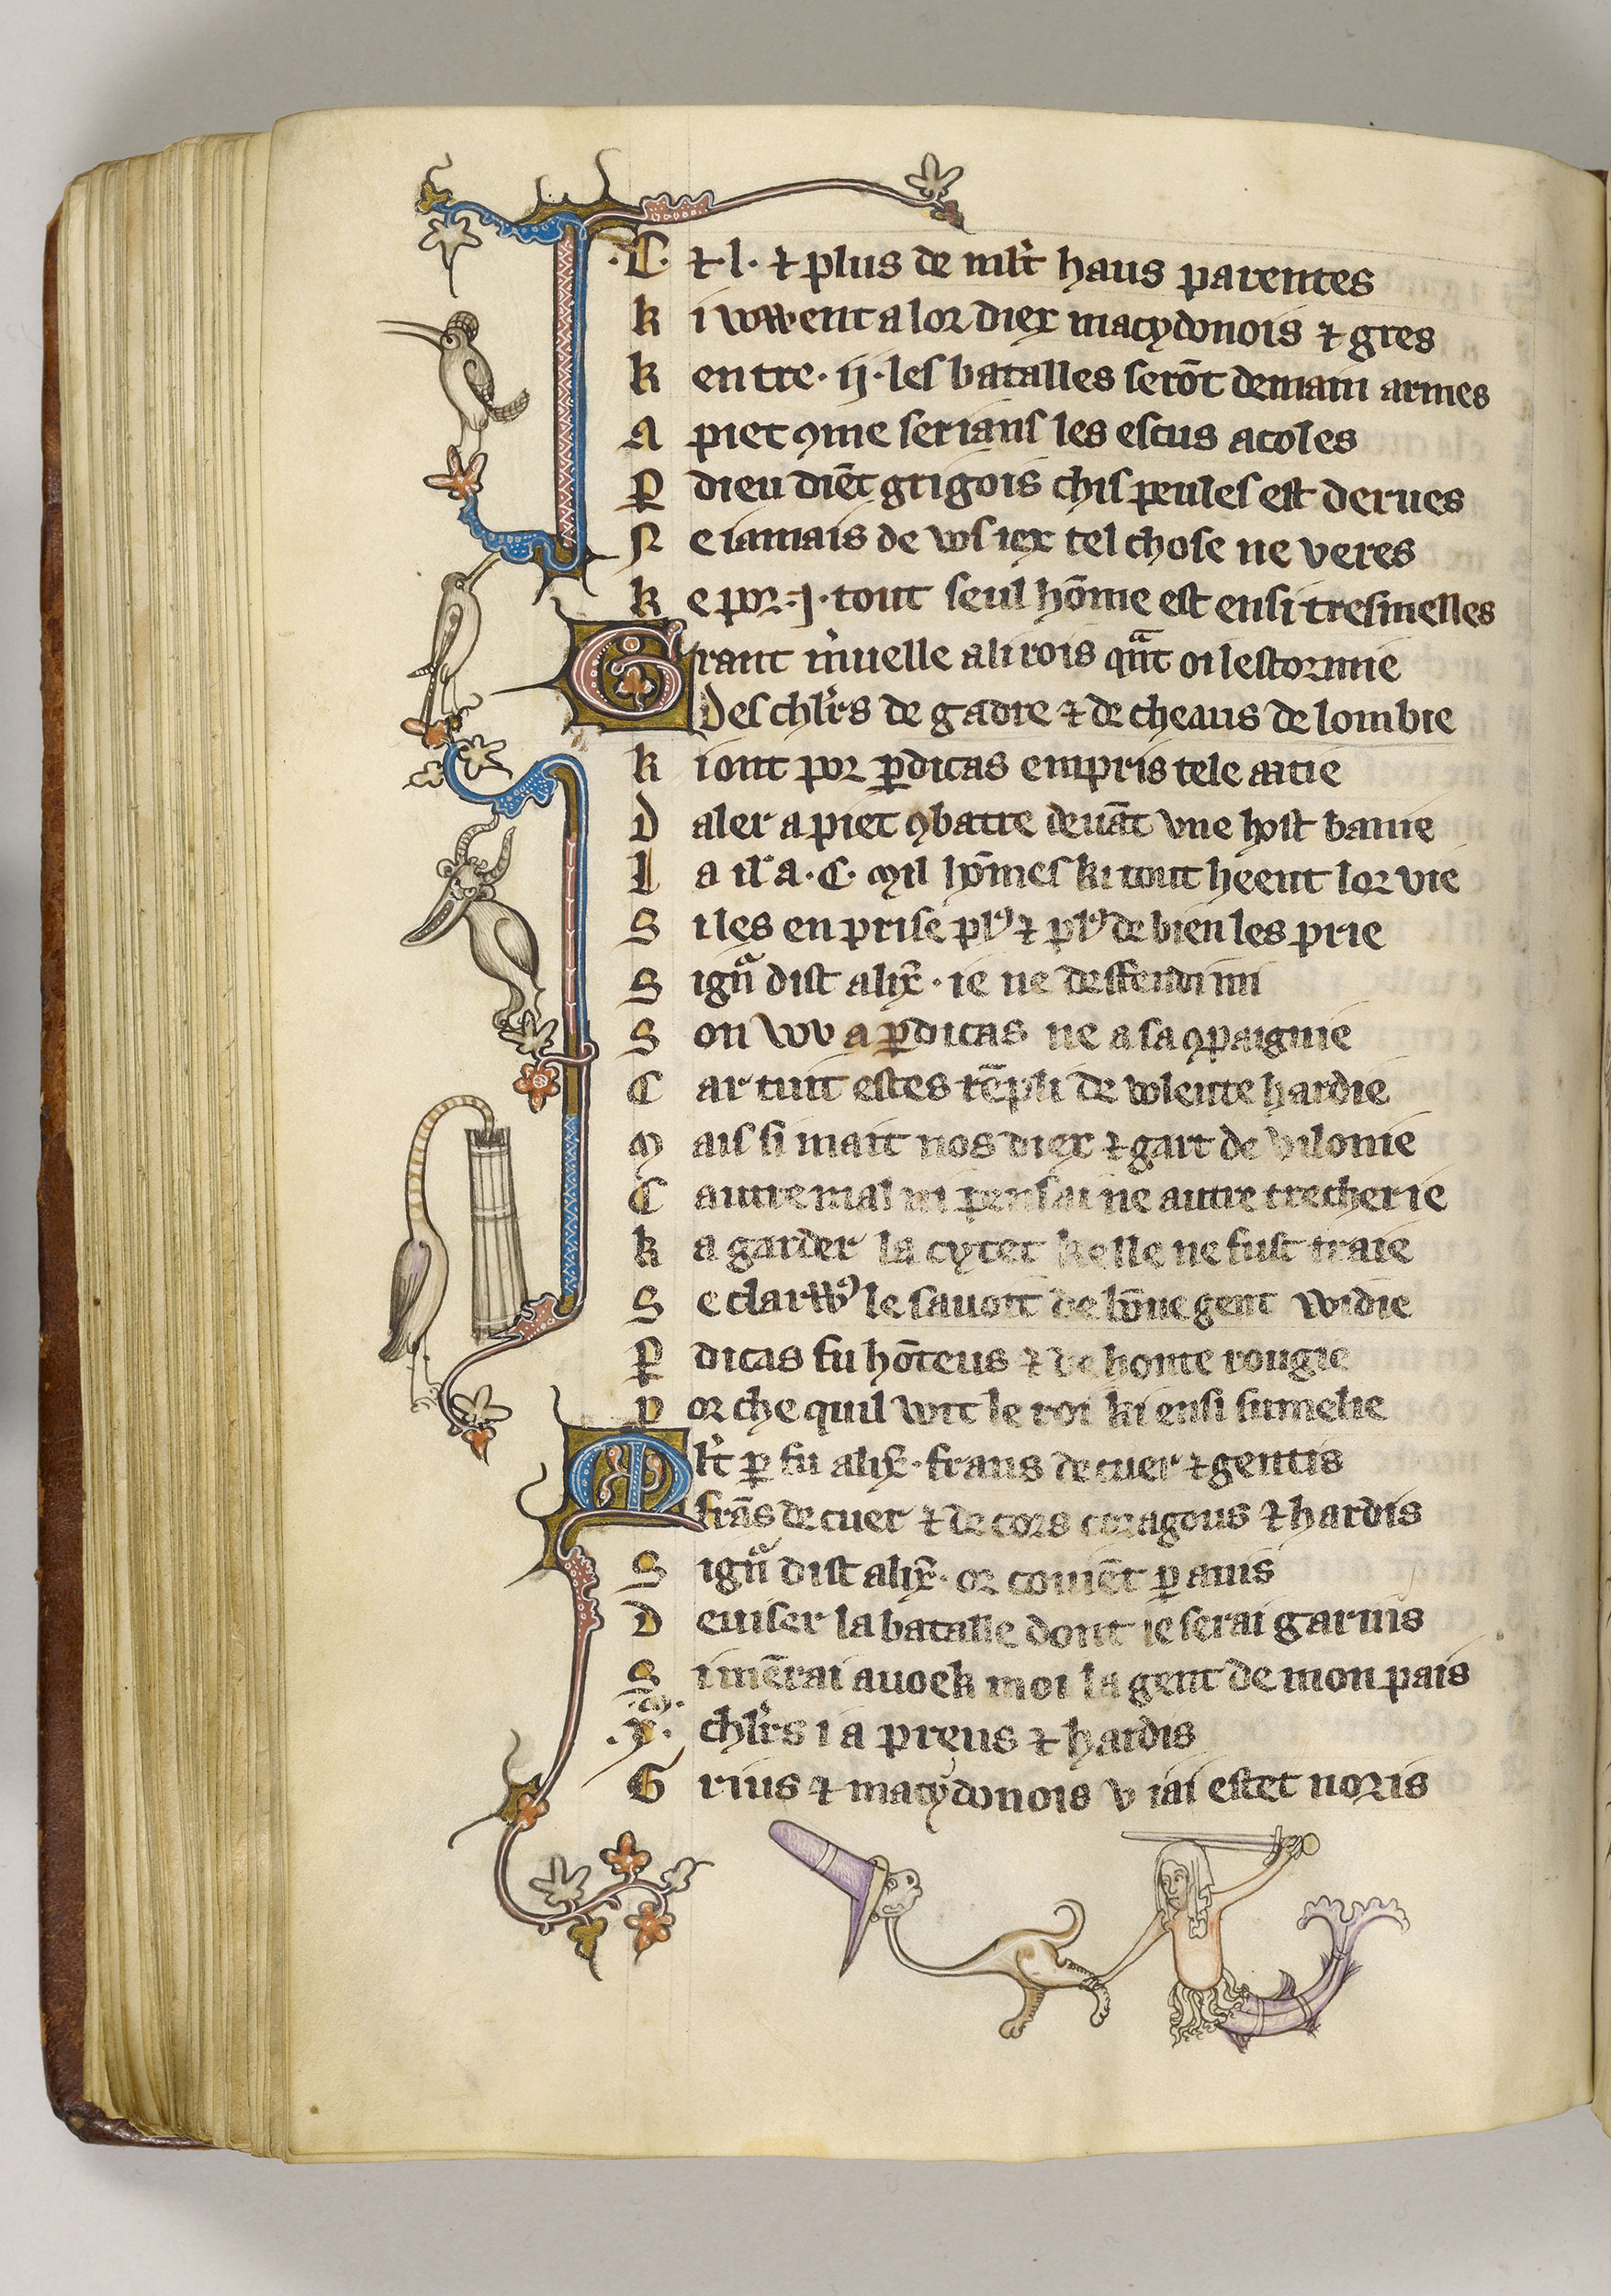 .C. ⁊ .l. ⁊ plus de ml̃t haus parentes
k i vvent a lor diex macydonois ⁊ gres
k entre .ij. les batalles serõt demain armes
A piet ꝯme serians les escus acoles
P dieu diẽt grigois chis peules est derues
N e iamais de vos iex tel chose ne veres
k e por .j. tout seul hõme est ensi tresmelles
Grant m̾uelle a li rois qᷓt oi lestormie
Des chl̾rs de gadre ⁊ de cheaus de lombie
k i ont por ꝑdicas empris tele aatie
D aler a piet ꝯbatre deuãt vne host banie
L a il a .C. mil hõmes ki tout heent lor vie
S i les en prise plꝰ ⁊ plꝰ de bien les prie
S ignᷓ dist alix̃. ie ne deffendi mi
S on vou a ꝑdicas ne a sa ꝯpaignie
C ar tuit estes rẽpli de volente hardie
M ais si mait nos diex ⁊ gart de vilonie
C autre mal ni pensai ne autre trecherie
k a garder la cytet kelle ne fust traie
S e clarvvꝰ le sauoit de bõne gent widie
Ꝑ dicas fu hõteus ⁊ de honte rougie
P or che quil voit le roi ki ensi sumelie
Ml̃t ꝑ fu alix̃. frans de cuer ⁊ gentis
frãs de cuer ⁊ de cors coragous ⁊ hardis
S ignᷓ dist alix̃. or couiẽt ꝑ auis
D euiser la batalle dont ie serai garnis
S i mẽrai auoek moi la gent de mon pais
.x.ᵐ. chl̾rs i a preus ⁊ hardis
G rius ⁊ macydonois v iai estet noris